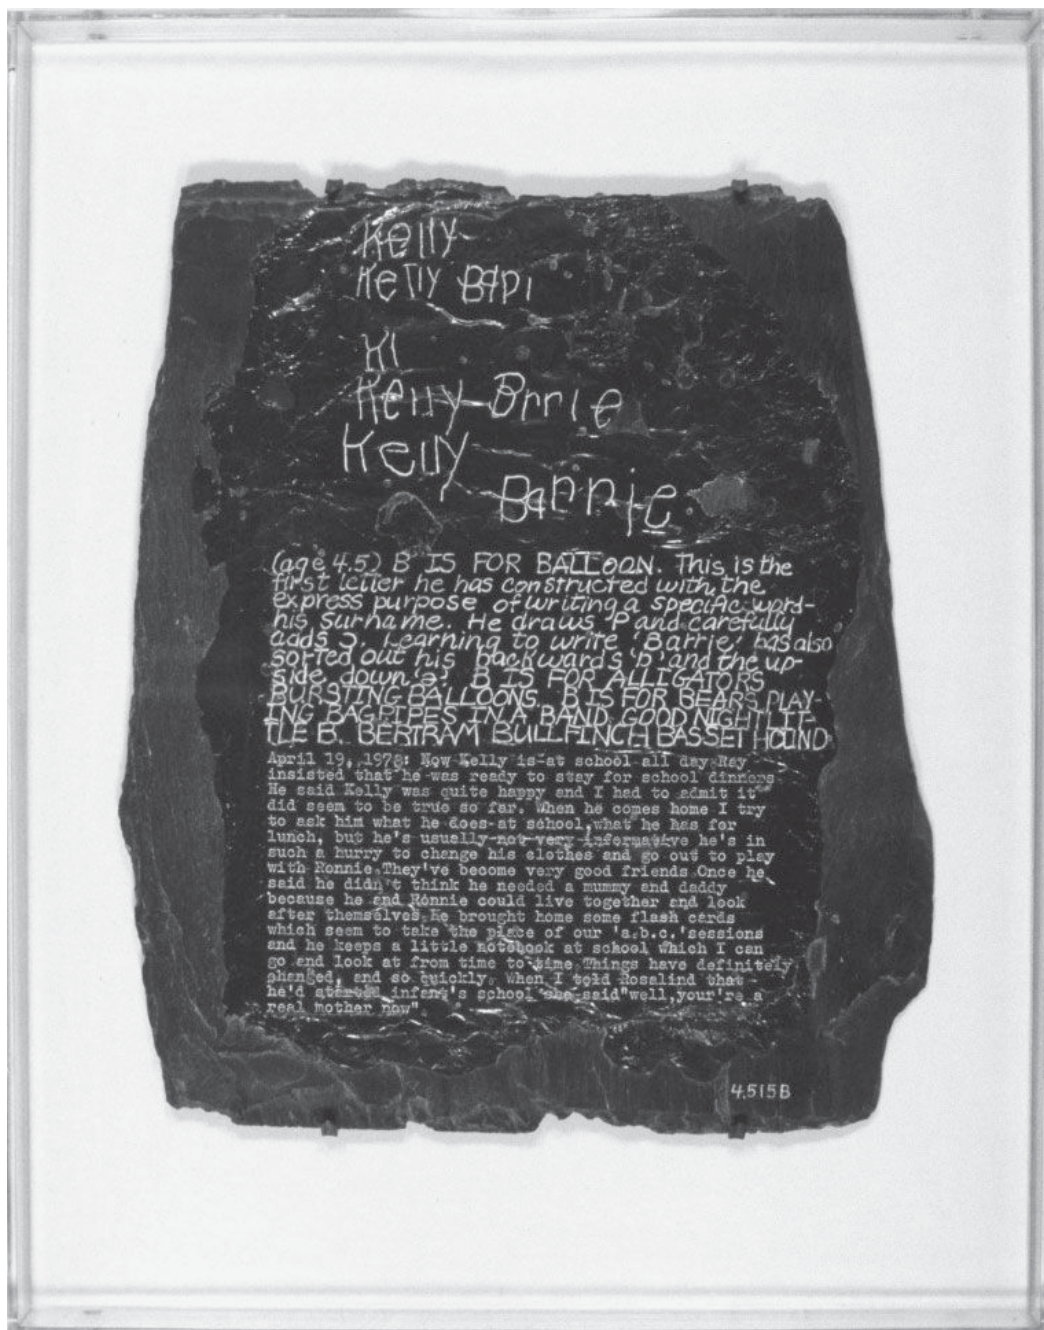 Kelly
Kelly BAPI
KI
Kelly Brrie
Kelly
Barrie
(age 4.5) B IS FOR BALLOON. This is the
first letter he has constructed with the
express purpose of writing a specific word-
his surname. He draws 'P' and carefully
adds Ɔ. Learning to write 'Barrie' has also
sorted out his backwards 'b' and the up-
side down 'e'. B IS FOR ALLIGATORS
BURSTING BALLOONS. B IS FOR BEARS PLAY-
ING BAGPIPES IN A BAND. GOOD NIGHT LIT-
TLE B. BERTRAM BULLFINCH BASSET HOUND
April 19, 1978: Now Kelly is at school all day Ray
insisted that he was ready to stay for school dinners
He said Kelly was quite happy and I had to admit it
did seem to be true so far. When he comes home I try
to ask him what he does at school,what he has for
lunch, but he's usually not very informative he's in
such a hurry to change his clothes and go out to play
with Ronnie.They've become very good friends Once he
said he didn't think he needed a mummy and daddy
because he and Ronnie could live together and look
after themselves.He brought home some flash cards
which seem to take the place of our 'a.b.c.'sessions
and he keeps a little notebook at school which I can
go and look at from time to time Things have definitely
changed, and so quickly. When I told Rosalind that
he'd started infant's school she said"well,your're a
real mother now"
4.515B